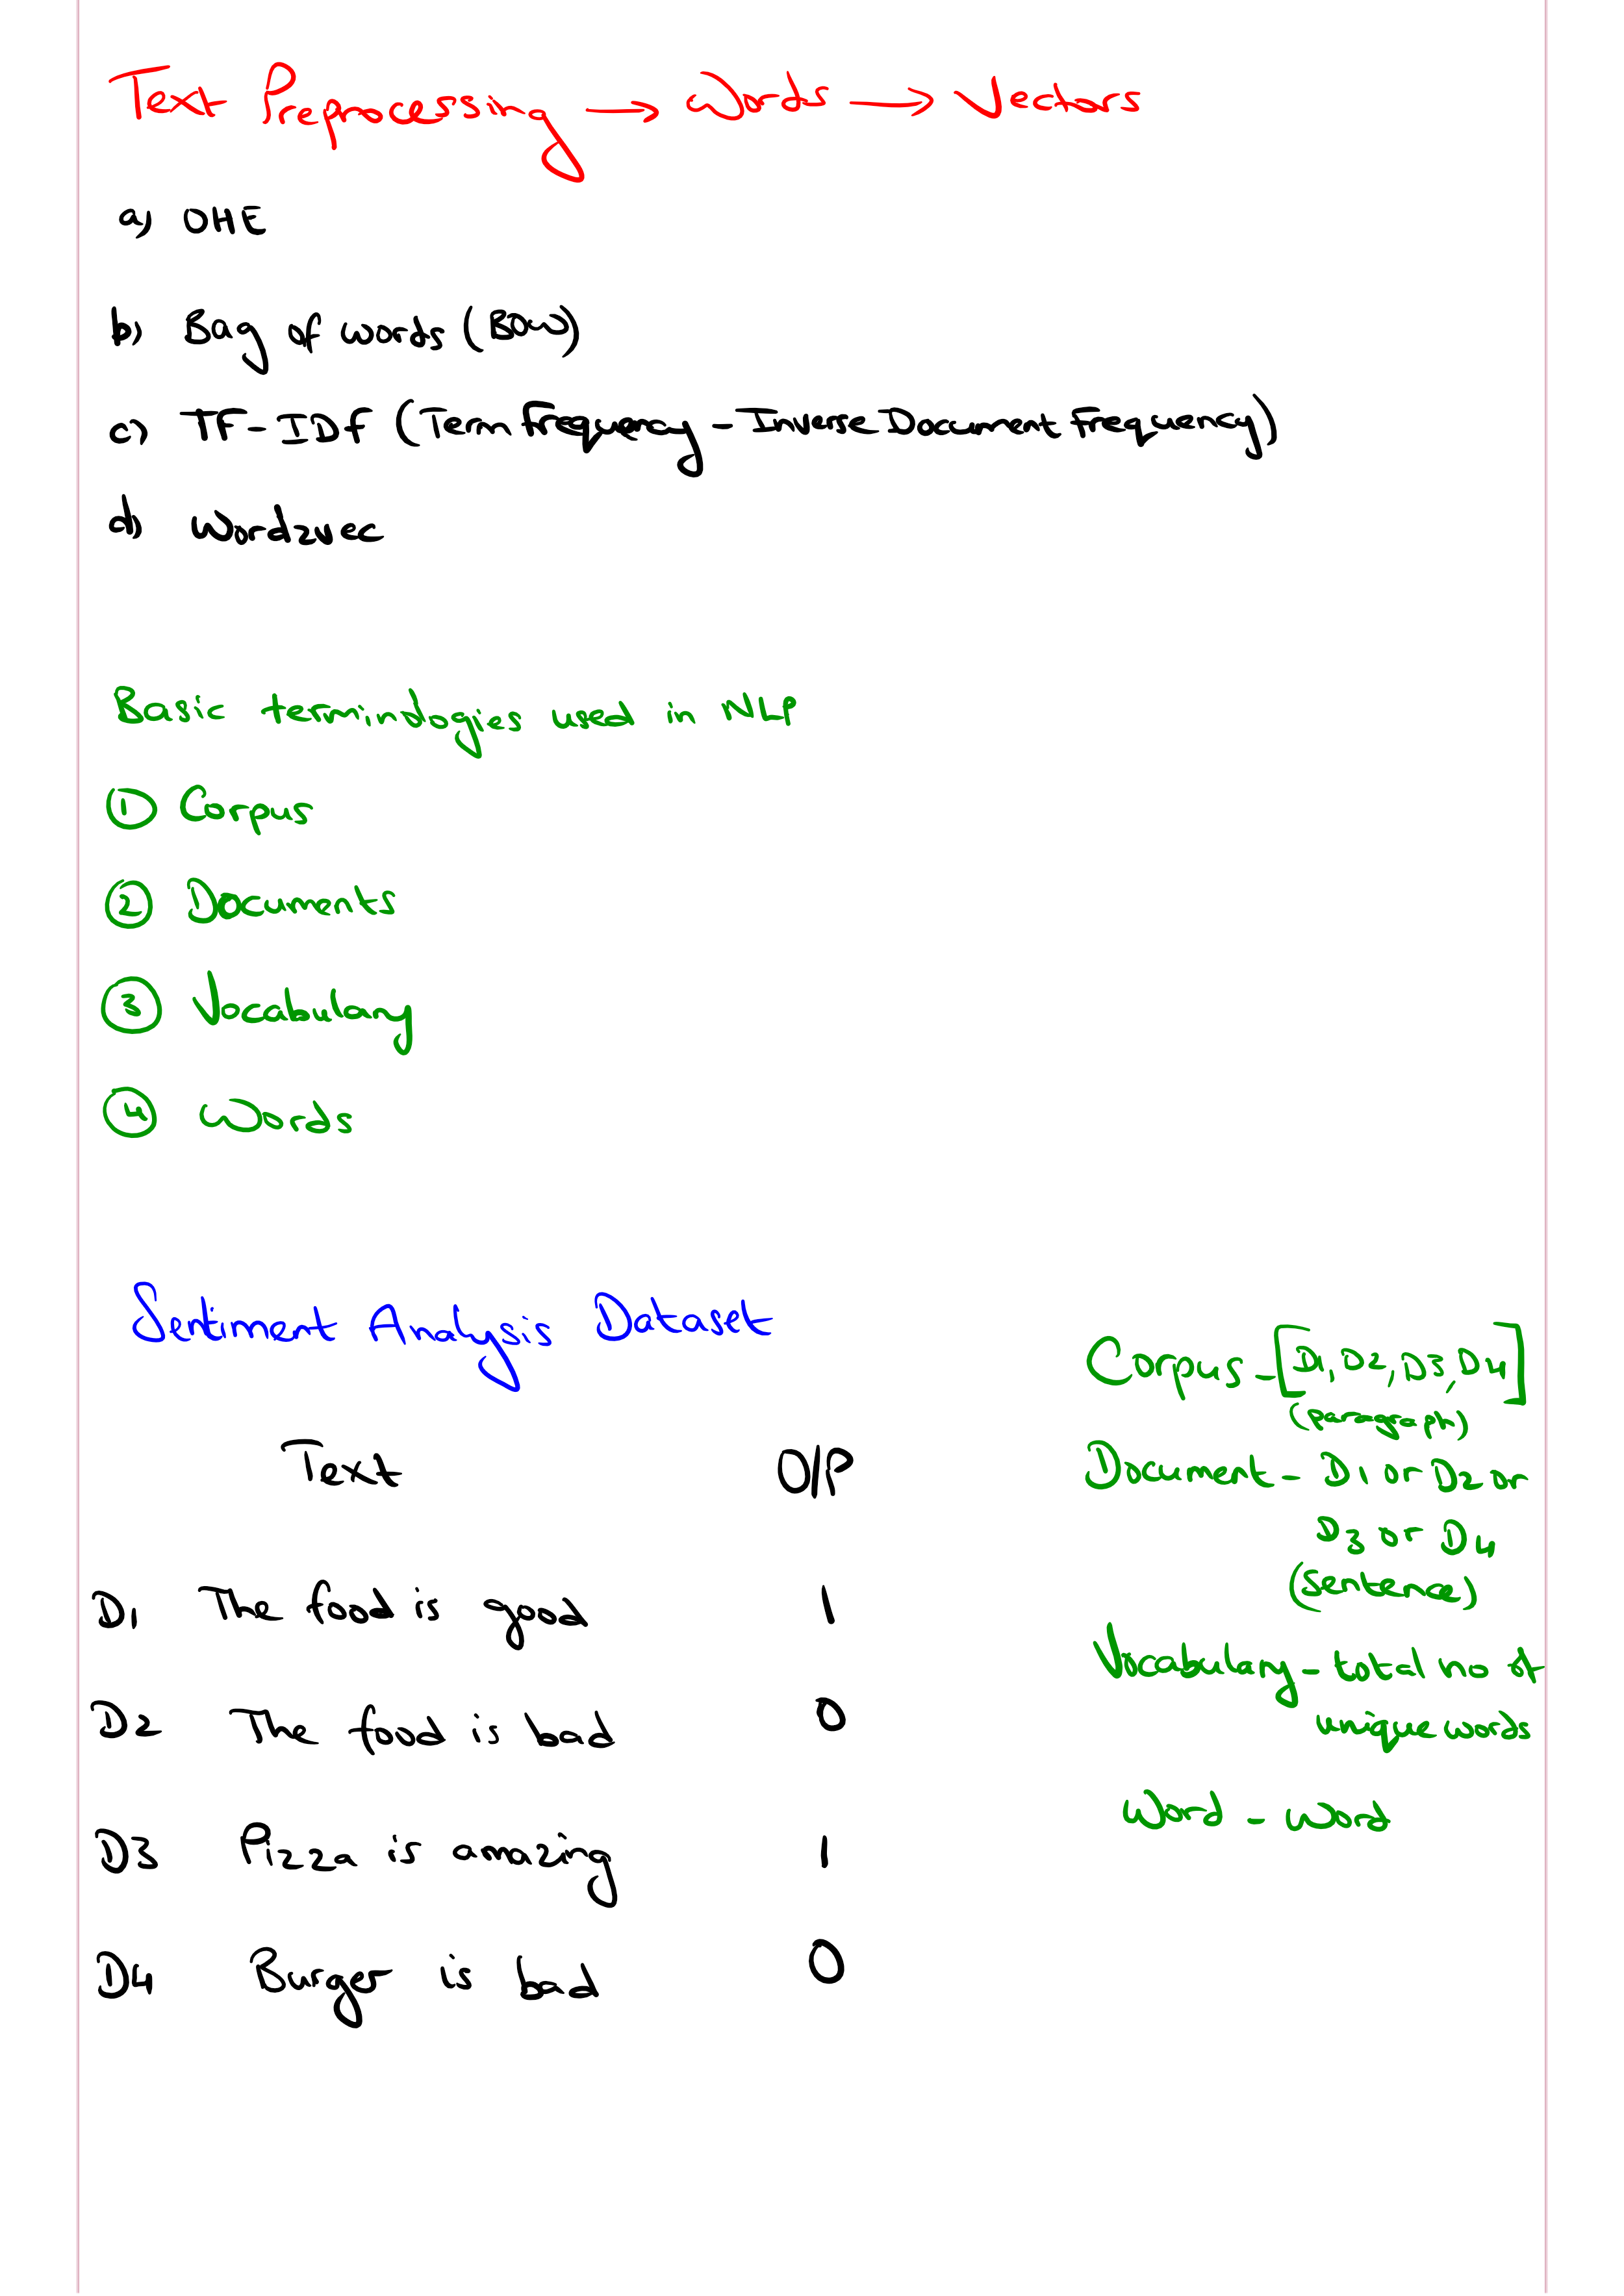 Text Preprocessing → Words → Vectors
a) OHE
b) Bag of words (BOW)
c) TF-IDF (Term Frequency - Inverse Document Frequency)
d) Word2vec
Basic terminologies used in NLP
① Corpus
② Documents
③ Vocabulary
④ Words
Sentiment Analysis Dataset
Text O/P
D1 The food is good 1
D2 The food is bad 0
D3 Pizza is amazing 1
D4 Burger is bad 0
Corpus - [D1, D2, D3, D4]
(paragraph)
Document - D1 or D2 or
D3 or D4
(sentence)
Vocabulary - total no of
unique words
Word - Word